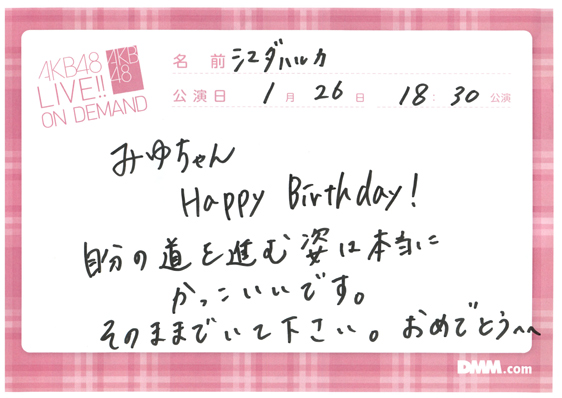 AKB48
LIVE!!
ON DEMAND
AKB
48
名 前 シエダハルカ
公演日 1月 26日 18:30公演
みゆちゃん
Happy Birthday!
自分の道を進む姿は本当に
かっこいいです。
そのままでいて下さい。おめでとう^^
DMM.com